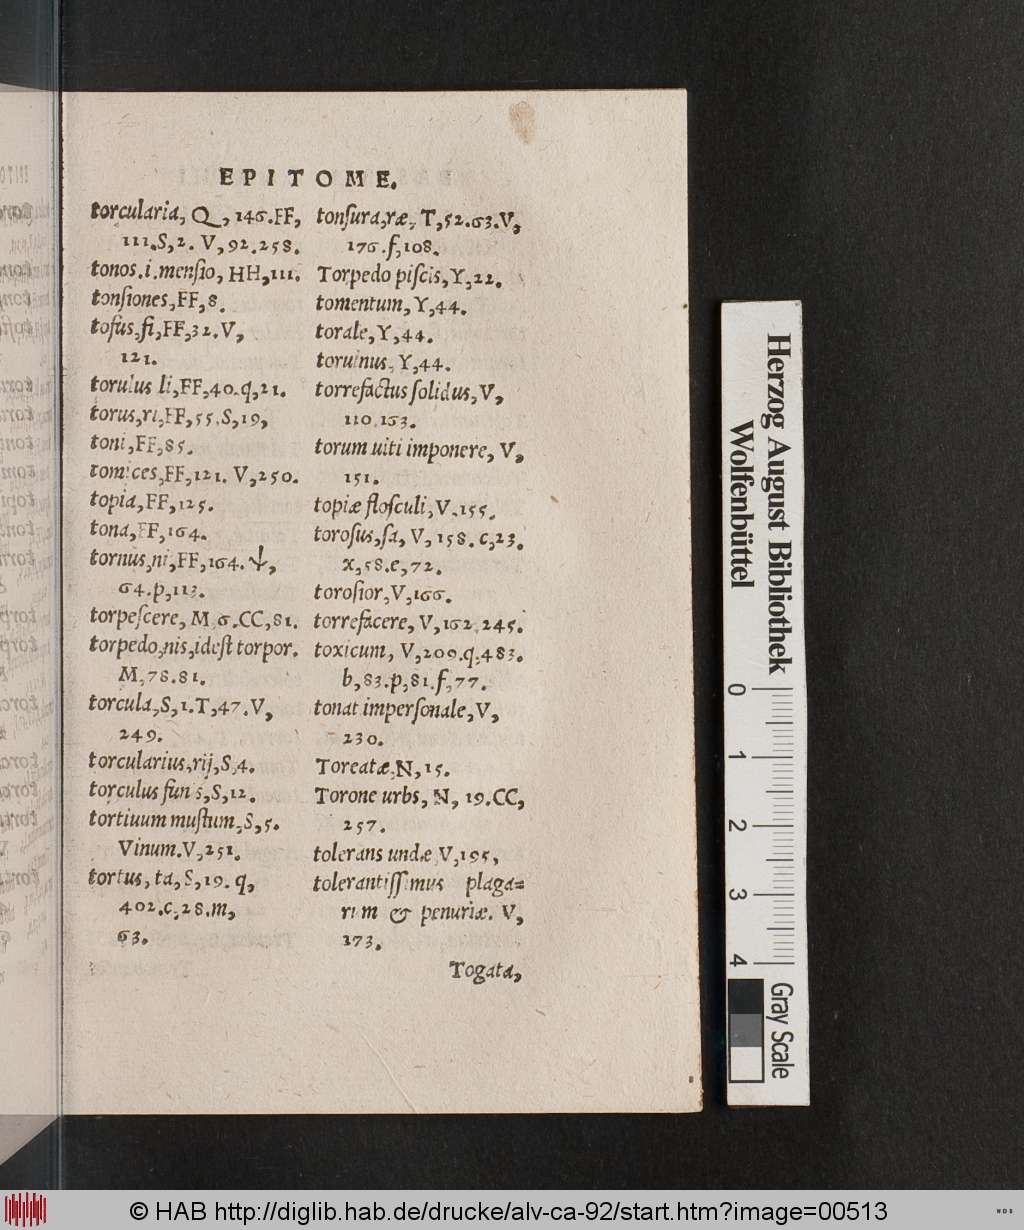 EPITOME.
torcularia, Q, 146. FF,
111. S, 2. V, 92. 258.
tonos. i. mensio, HH, 111.
tonsiones, FF, 8.
tofus, fi, FF, 32. V,
121.
torulus li, FF, 40. q, 21.
torus, ri, FF, 55. S, 19,
toni, FF, 85.
tomices, FF, 121. V, 250.
topia, FF, 125.
tona, FF, 164.
tornus, ni, FF, 164. ψ,
64. p, 113.
torpescere, M, 6. CC, 81.
torpedo, nis, idest torpor.
M, 78. 81.
torcula, S, 1. T, 47. V,
249.
torcularius, rij, S, 4.
torculus funis, S, 12.
tortiuum mustum, S, 5.
Vinum. V, 251.
tortus, ta, S, 19. q,
402. c, 28. m,
63.
tonsura, ræ, T, 52. 63. V,
176. f, 108.
Torpedo piscis, Y, 22.
tomentum, Y, 44.
torale, Y, 44.
toruinus, Y, 44.
torrefactus solidus, V,
110. 163.
torum uiti imponere, V,
151.
topiæ flosculi, V. 155.
torosus, sa, V, 158. c, 23.
x, 58. e, 72.
torosior, V, 166.
torrefacere, V, 162. 245.
toxicum, V, 209. q, 483.
b, 83. p, 81. f, 77.
tonat impersonale, V,
230.
Toreatæ, N, 15.
Torone urbs, N, 19. CC,
257.
tolerans undæ, V, 195,
tolerantissimus plaga=
rum & penuriæ. V,
173.
Togata,
Herzog August Bibliothek
Wolfenbüttel
0 1 2 3 4
Gray Scale
© HAB http://diglib.hab.de/drucke/alv-ca-92/start.htm?image=00513